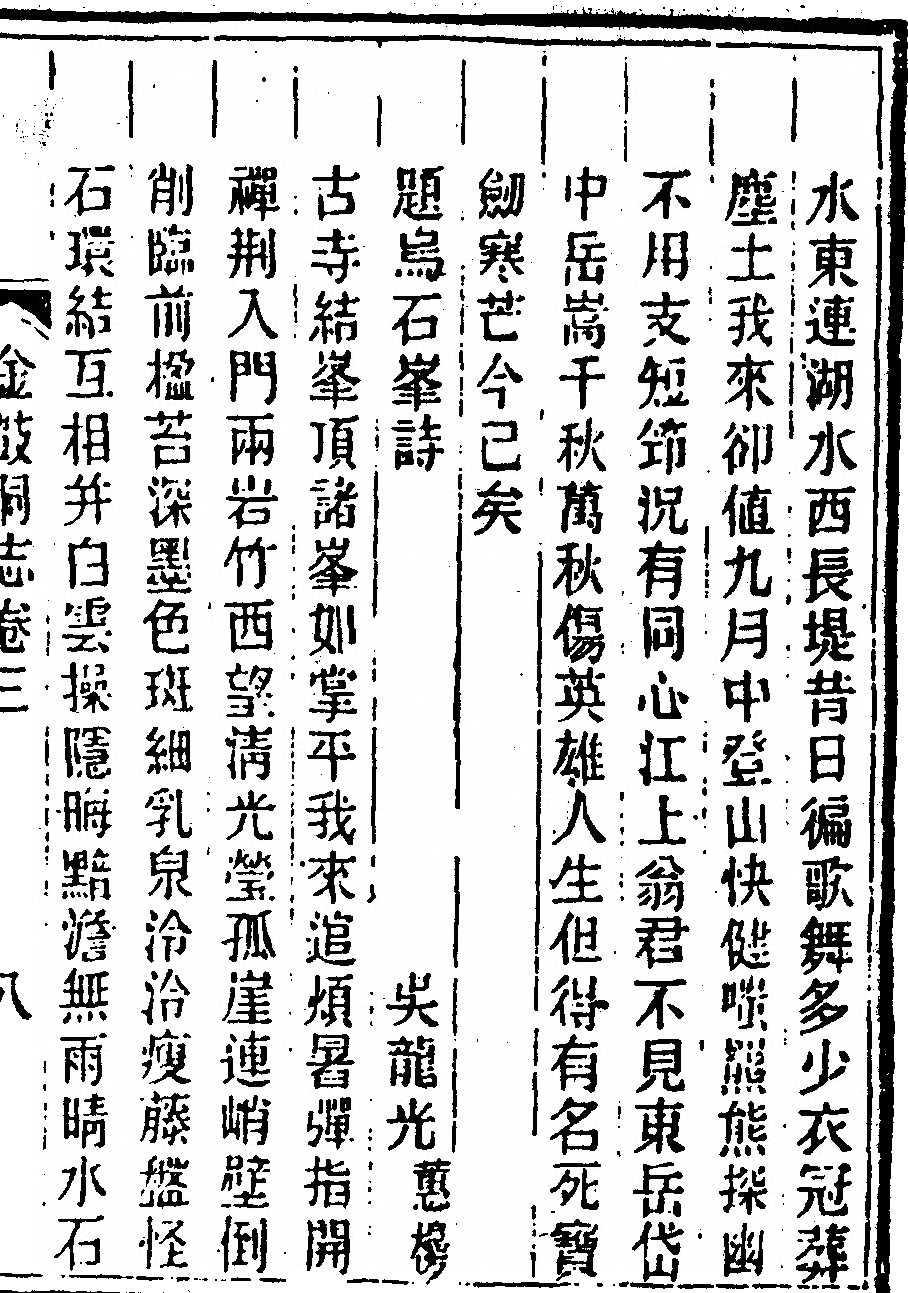 水東連湖水西長堤昔日徧歌舞多少衣冠葬
塵土我來卻値九月中登山快健嗤羆熊探幽
不用支短筇況有同心江上翁君不見東岳岱
中岳嵩千秋萬秋傷英雄人生但得有名死寶
劒寒芒今已矣
題烏石峯詩 吳龍光 蕙櫋
古寺結峯頂諸峯如掌平我來逭煩暑彈指開
禪荆入門兩岩竹西望淸光瑩孤崖連峭壁倒
削臨前楹苔深墨色斑細乳泉泠泠瘦藤盤怪
石環結互相幷白雲操隱晦黯澹無雨晴水石
金鼓洞志卷三 八